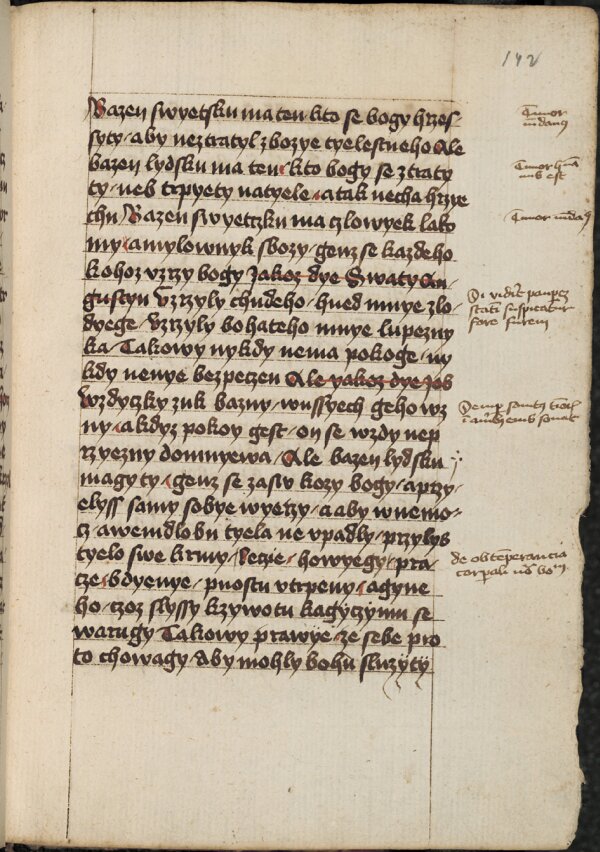 142
Bazen swyetsku ma ten kto se bogy hrzes-
syty aby neztratyl zbozye tyelestneho Ale
bazen lydsku ma ten kto bogy se ztraty
ty neb trpyety natyele a tak necha hrzye
chu Bazen swyetczku ma czlowyek lako
my a mylownyk sbozy genz se kazdeho
kohoz vzrzy bogy Jakoz dye Swaty Au-
gustyn Vzrzyly chudeho hned mnye zlo-
dyege Vzrzyly bohateho mnye lupezny
ka Takowy nykdy nema pokoge ny
kdy nenye bezpeczen Ale yakoz dye Job
Wzdyczky zuk bazny wussyech geho wz
ny a kdyz pokoy gest on se wzdy nep
rzyezny domnyewa Ale bazen lydsku
magy ty genz se zasw kozy bogy a przy-
elyss samy sobye wyerzy a aby wnemo-
cz a wemdlobu tyela ne vpadly przylys
tyelo swe krmy howyegy pra-
cze bdyenye pustu vtrpeny a gyne
ho czoz slyssy kzywotu kagyczymu se
warugy Takowy prawye ze sebe pro
to chowagy Aby mohly bohu sluzyty
Timor
mundanus
Timor
Timor mundanus
Si viderit pauperem
suspicatur
furem
Semper
de obtemperancia
corporali